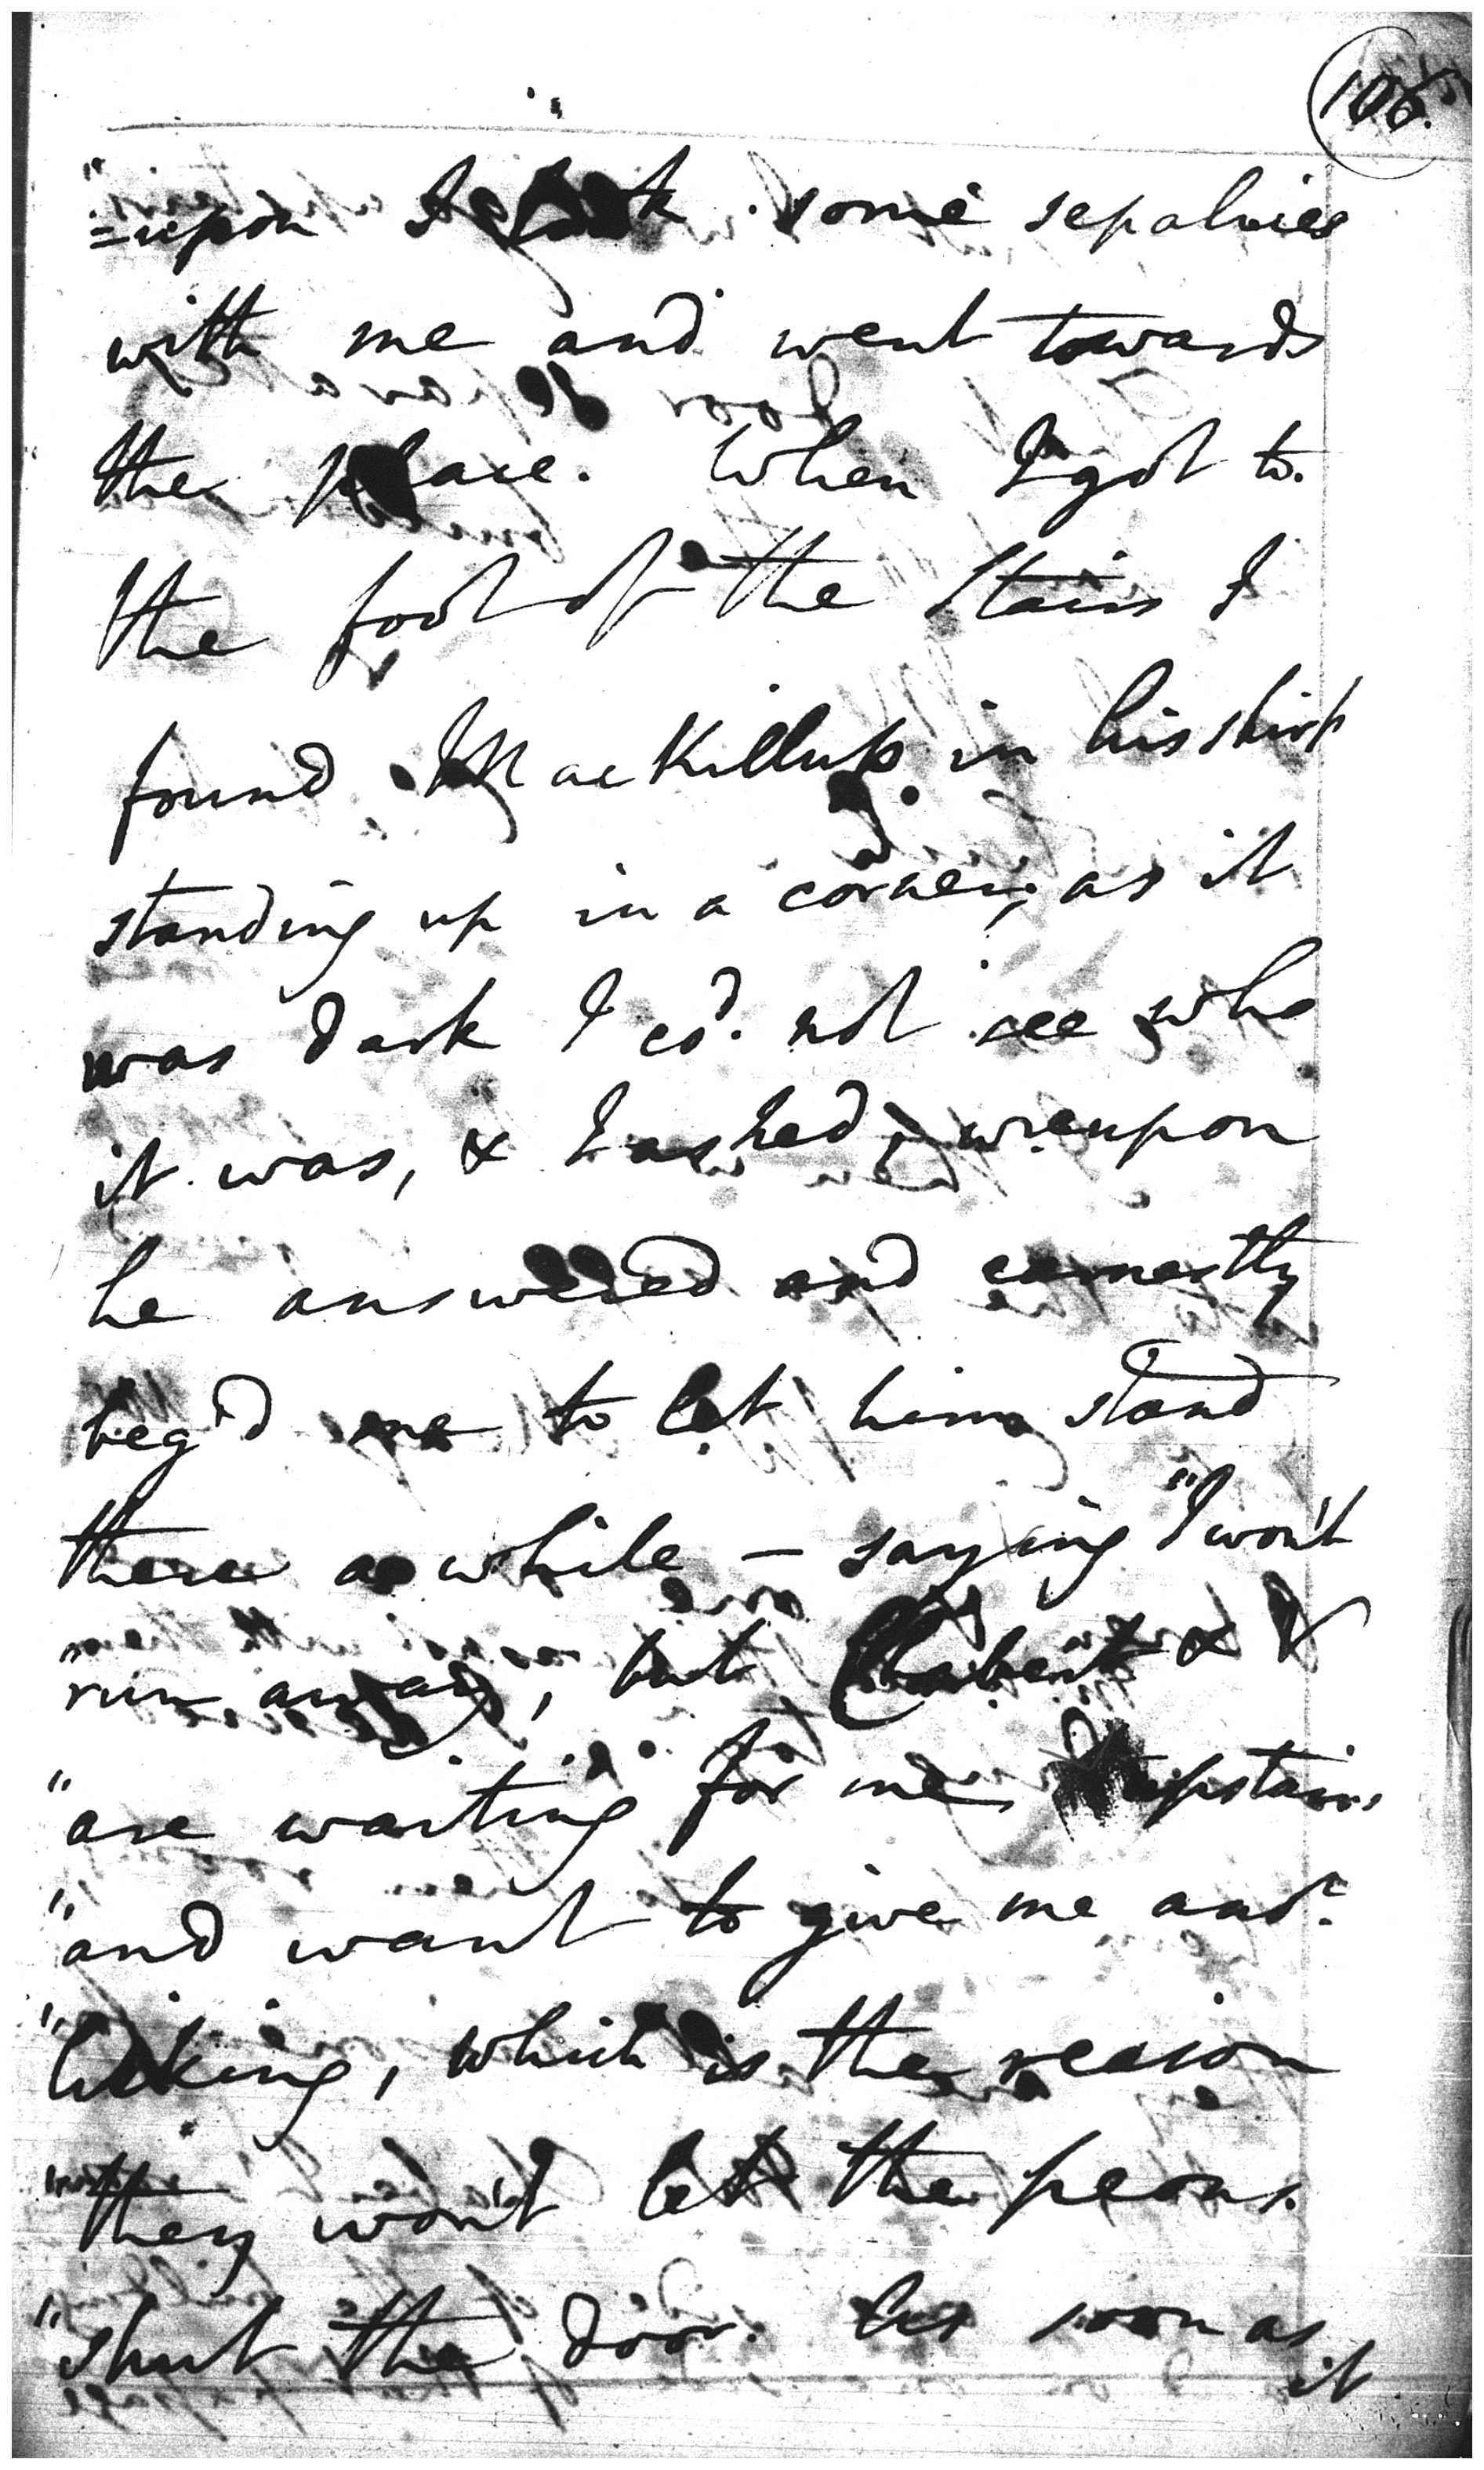 106.
"=upon I took some sepahies
with me and went towards
the place. When I got to
the foot of the stairs I
found MacKillup in his shirt
standing up in a corner; as it
was dark I cd. not see who
it was, & I asked, wreupon
he answered and earnestly
beg'd me to let him stand
there a while — saying "I won't
run away, but &
"are waiting for me upstairs
"and want to give me anor.
"licking, which is the reason
"they won't let the peons
"shut the door. As soon as
it